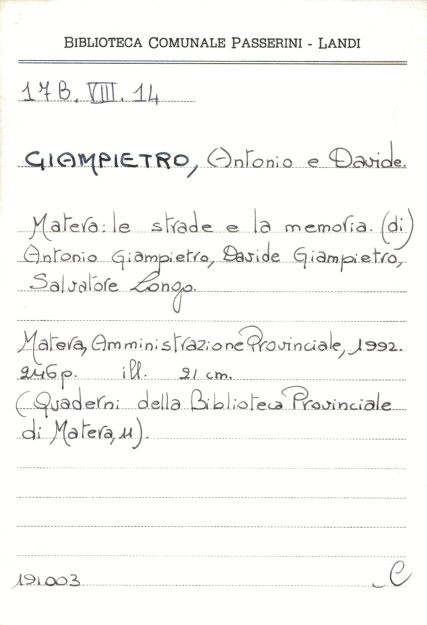 BIBLIOTECA COMUNALE PASSERINI - LANDI
17B. VIII. 14
GIAMPIETRO, Antonio e Davide.
Matera: le strade e la memoria. (di)
Antonio Giampietro, Davide Giampietro,
Salvatore Longo.
Matera, Amministrazione Provinciale, 1992.
246p. ill. 21 cm.
(Quaderni della Biblioteca Provinciale
di Matera, 11).
191.003 C